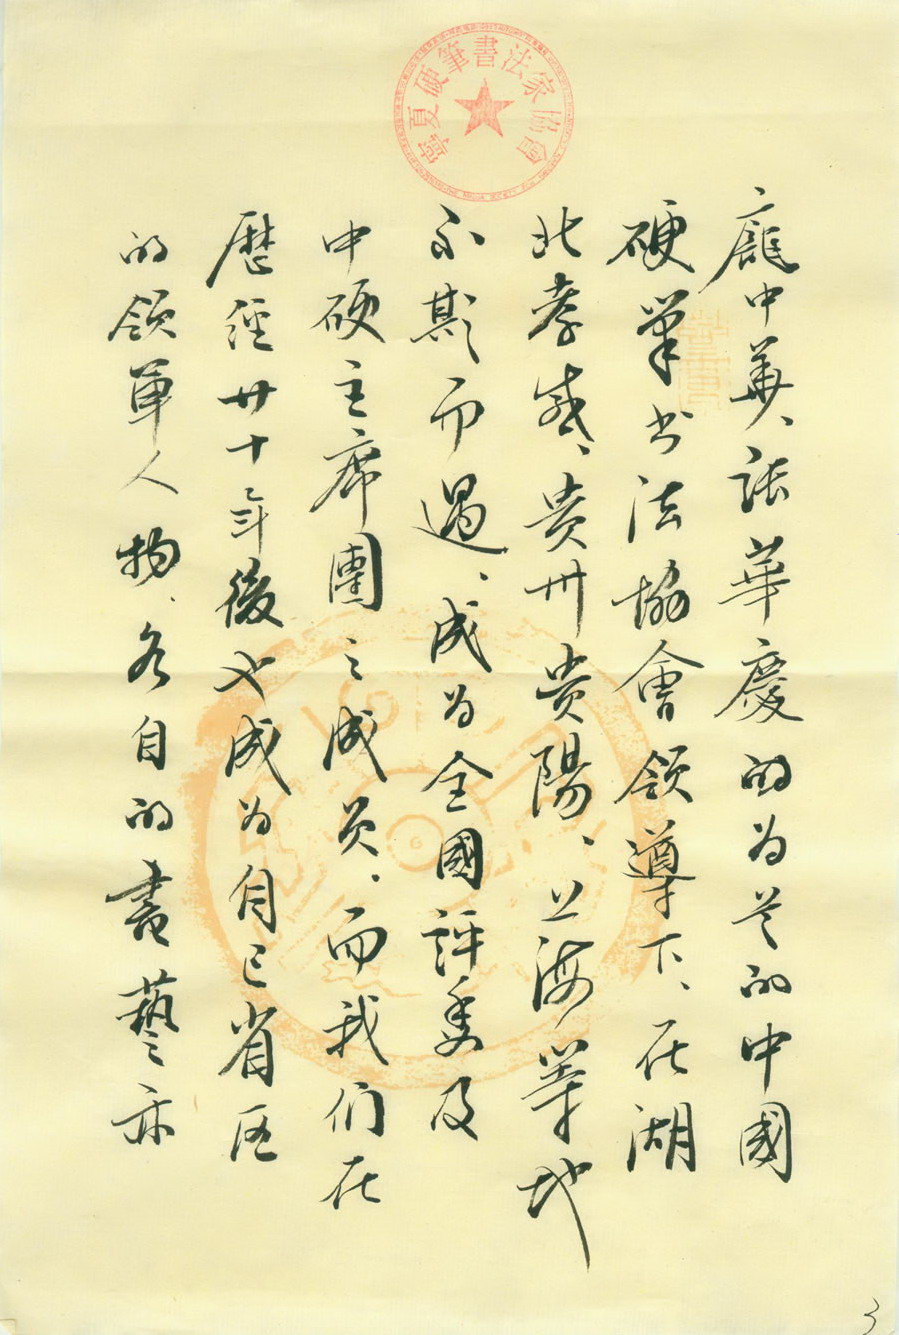 寧夏硬筆書法家協會
龐中華、張華慶的为首的中國
硬筆书法協會領導下、在湖
北孝感、贵州贵陽、上海等地
不期而遇、成为全國評委及
中硬主席團之成员、而我们在
歷經廿十年後也成为自已省區
的領軍人物、各自的書藝亦
3